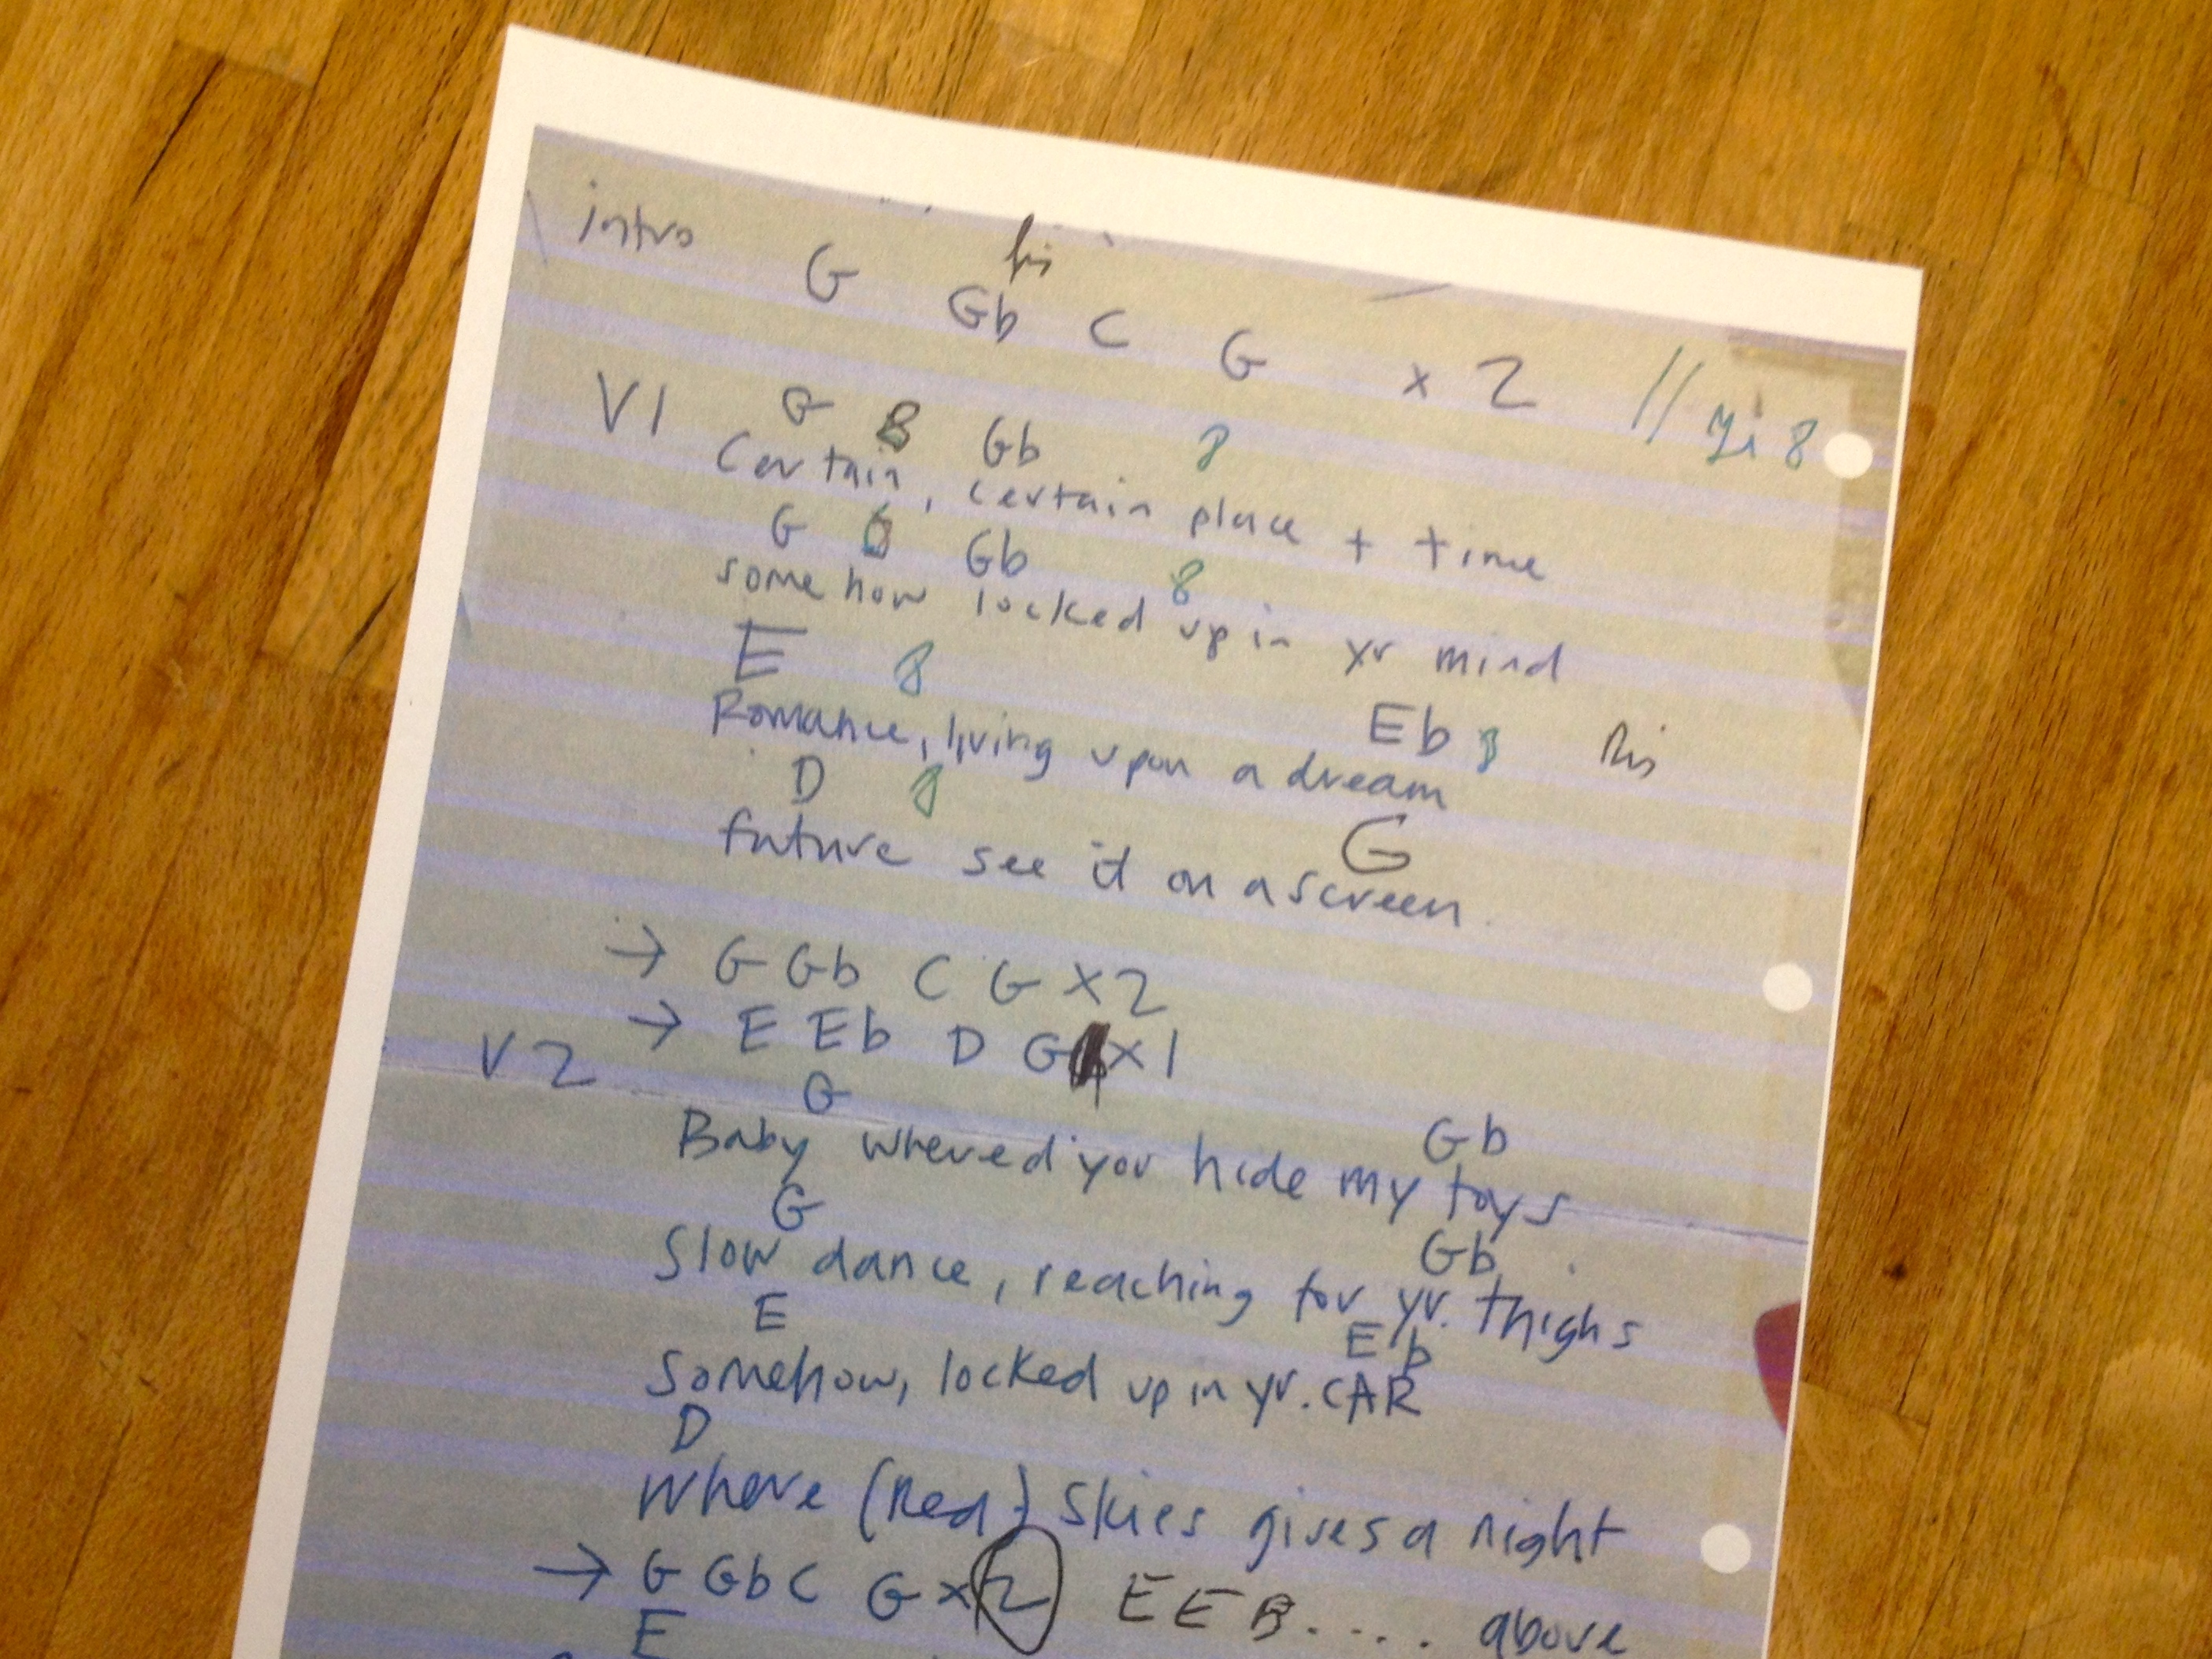 intro G Gb C G x 2 // 8
his
V1 G 8 Gb 8
Certain, certain place + time
G 8 Gb 8
somehow locked up in yr mind
E 8 Eb 8 his
Romance, living upon a dream
D 8 G
future see it on a screen.
→ G Gb C G x2
→ E Eb D G x1
V2 G Gb
Baby whered you hide my toys
G Gb
Slow dance, reaching for yr. thighs
E Eb
Somehow, locked up in yr. CAR
D
Where (Red) Skies gives a night
→ G Gb C G x2 E EB.... above
E